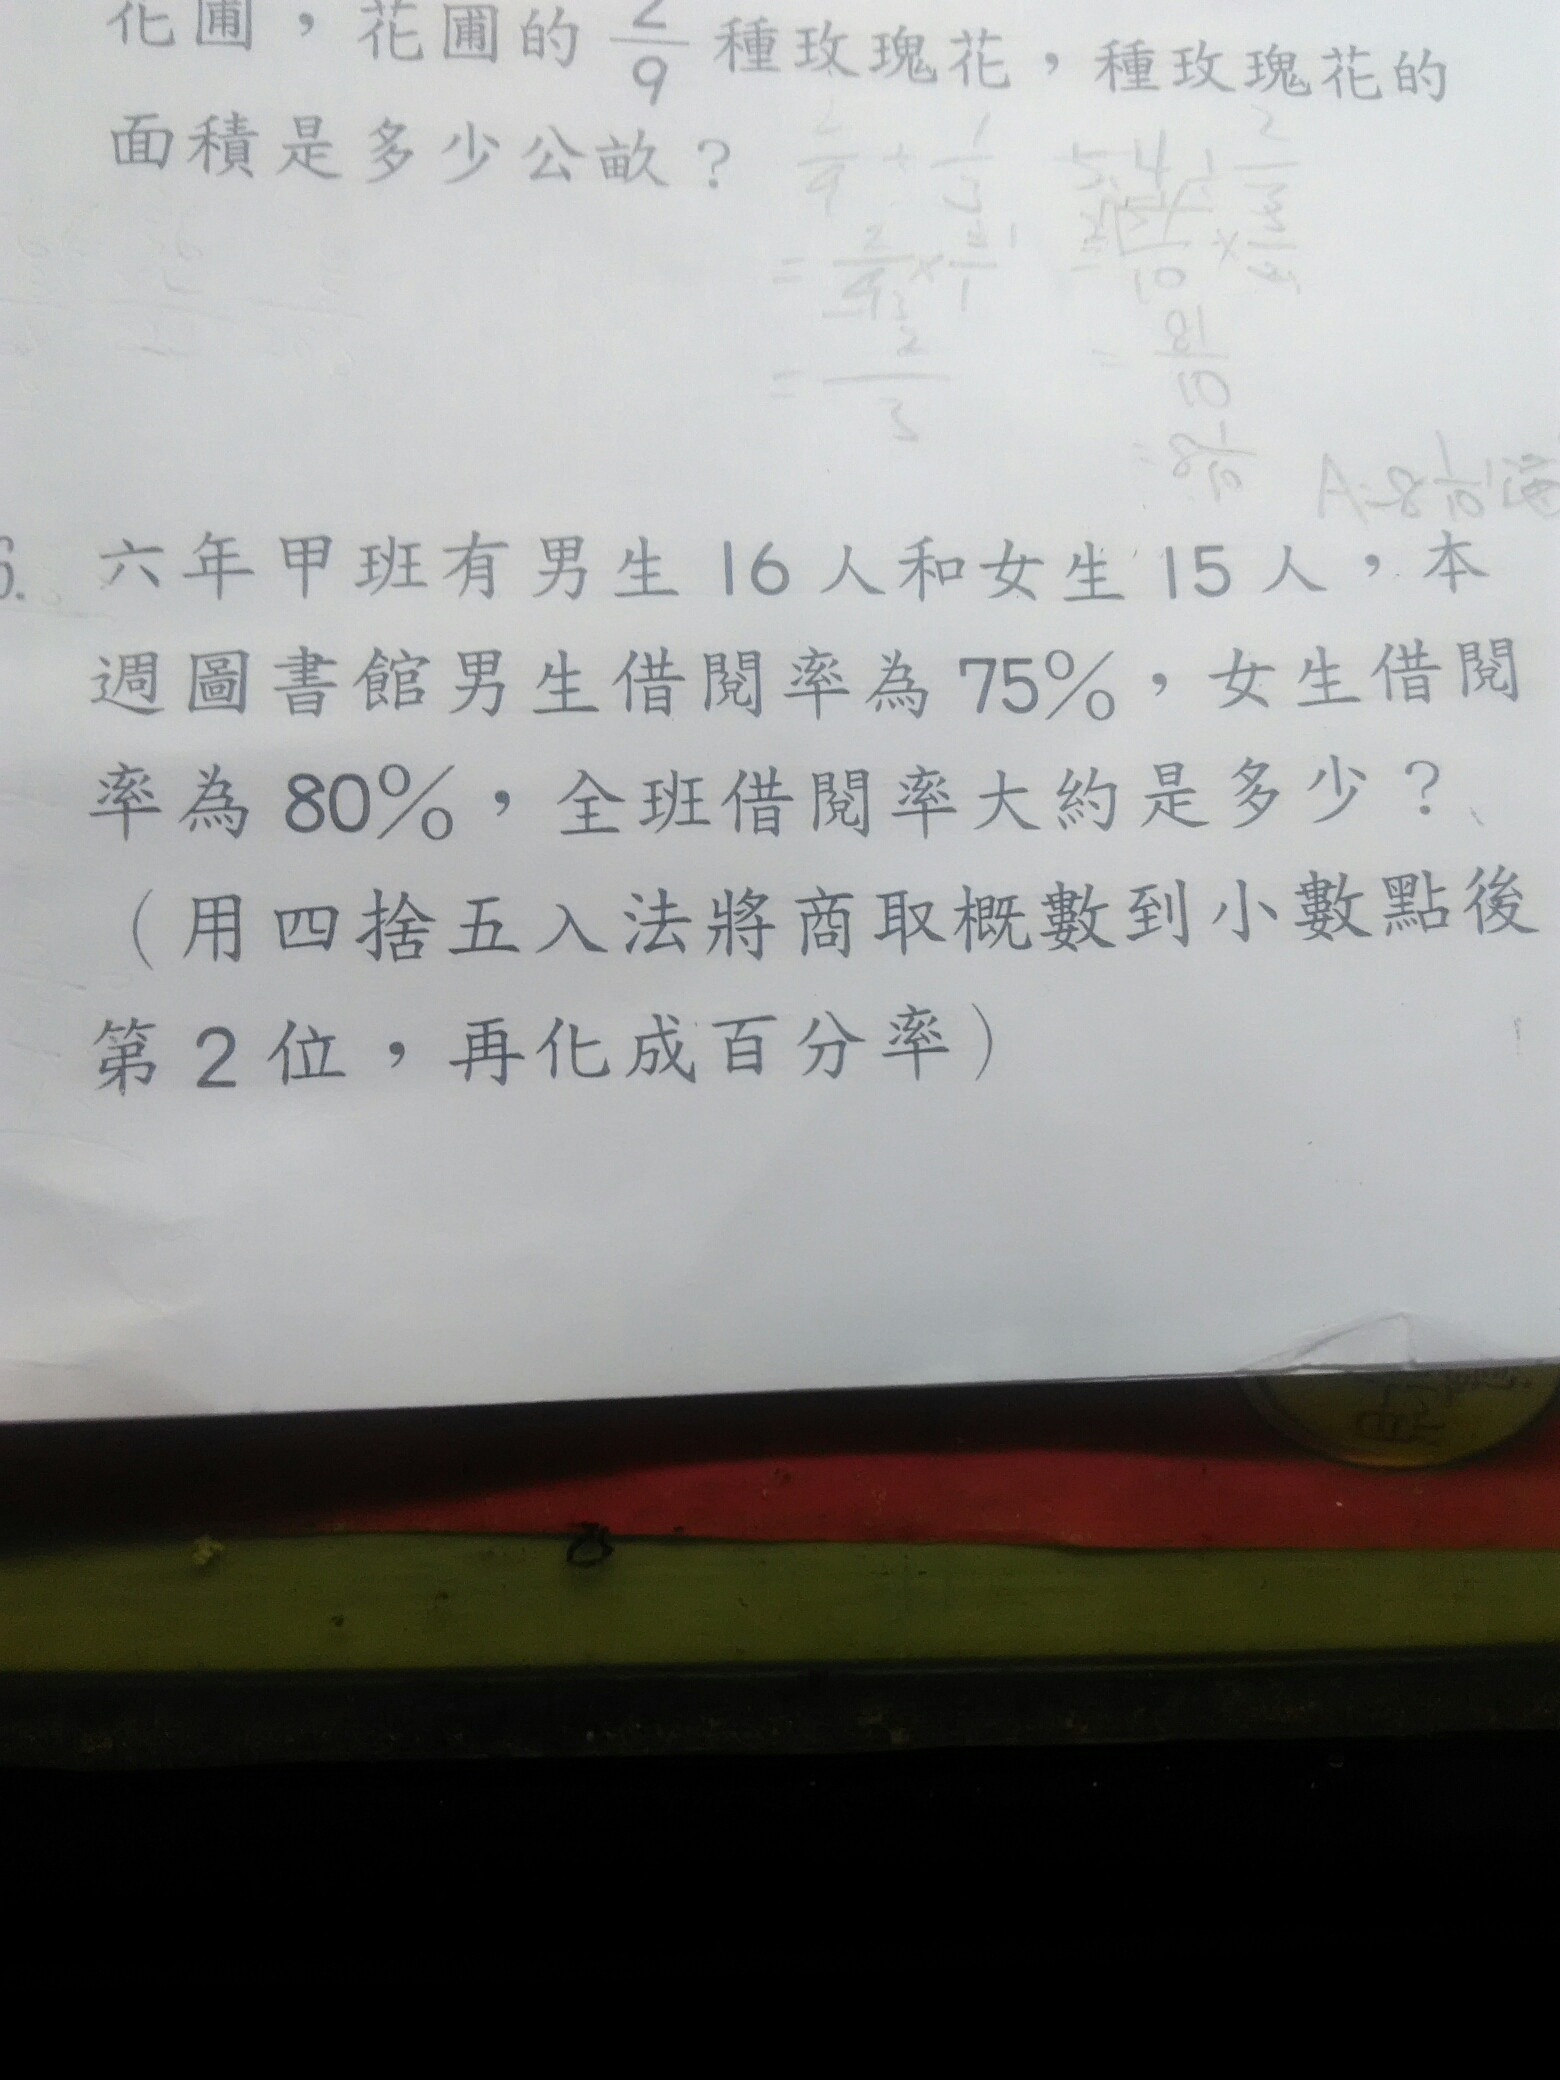 花圃，花圃的 2/9 種玫瑰花，種玫瑰花的
面積是多少公畝？
6. 六年甲班有男生 16 人和女生 15 人，本
週圖書館男生借閱率為 75%，女生借閱
率為 80%，全班借閱率大約是多少？
（用四捨五入法將商取概數到小數點後
第 2 位，再化成百分率）
2/9 ÷ 1/3
= 2/3
= 81/10
= 8 1/10
A: 8 1/10